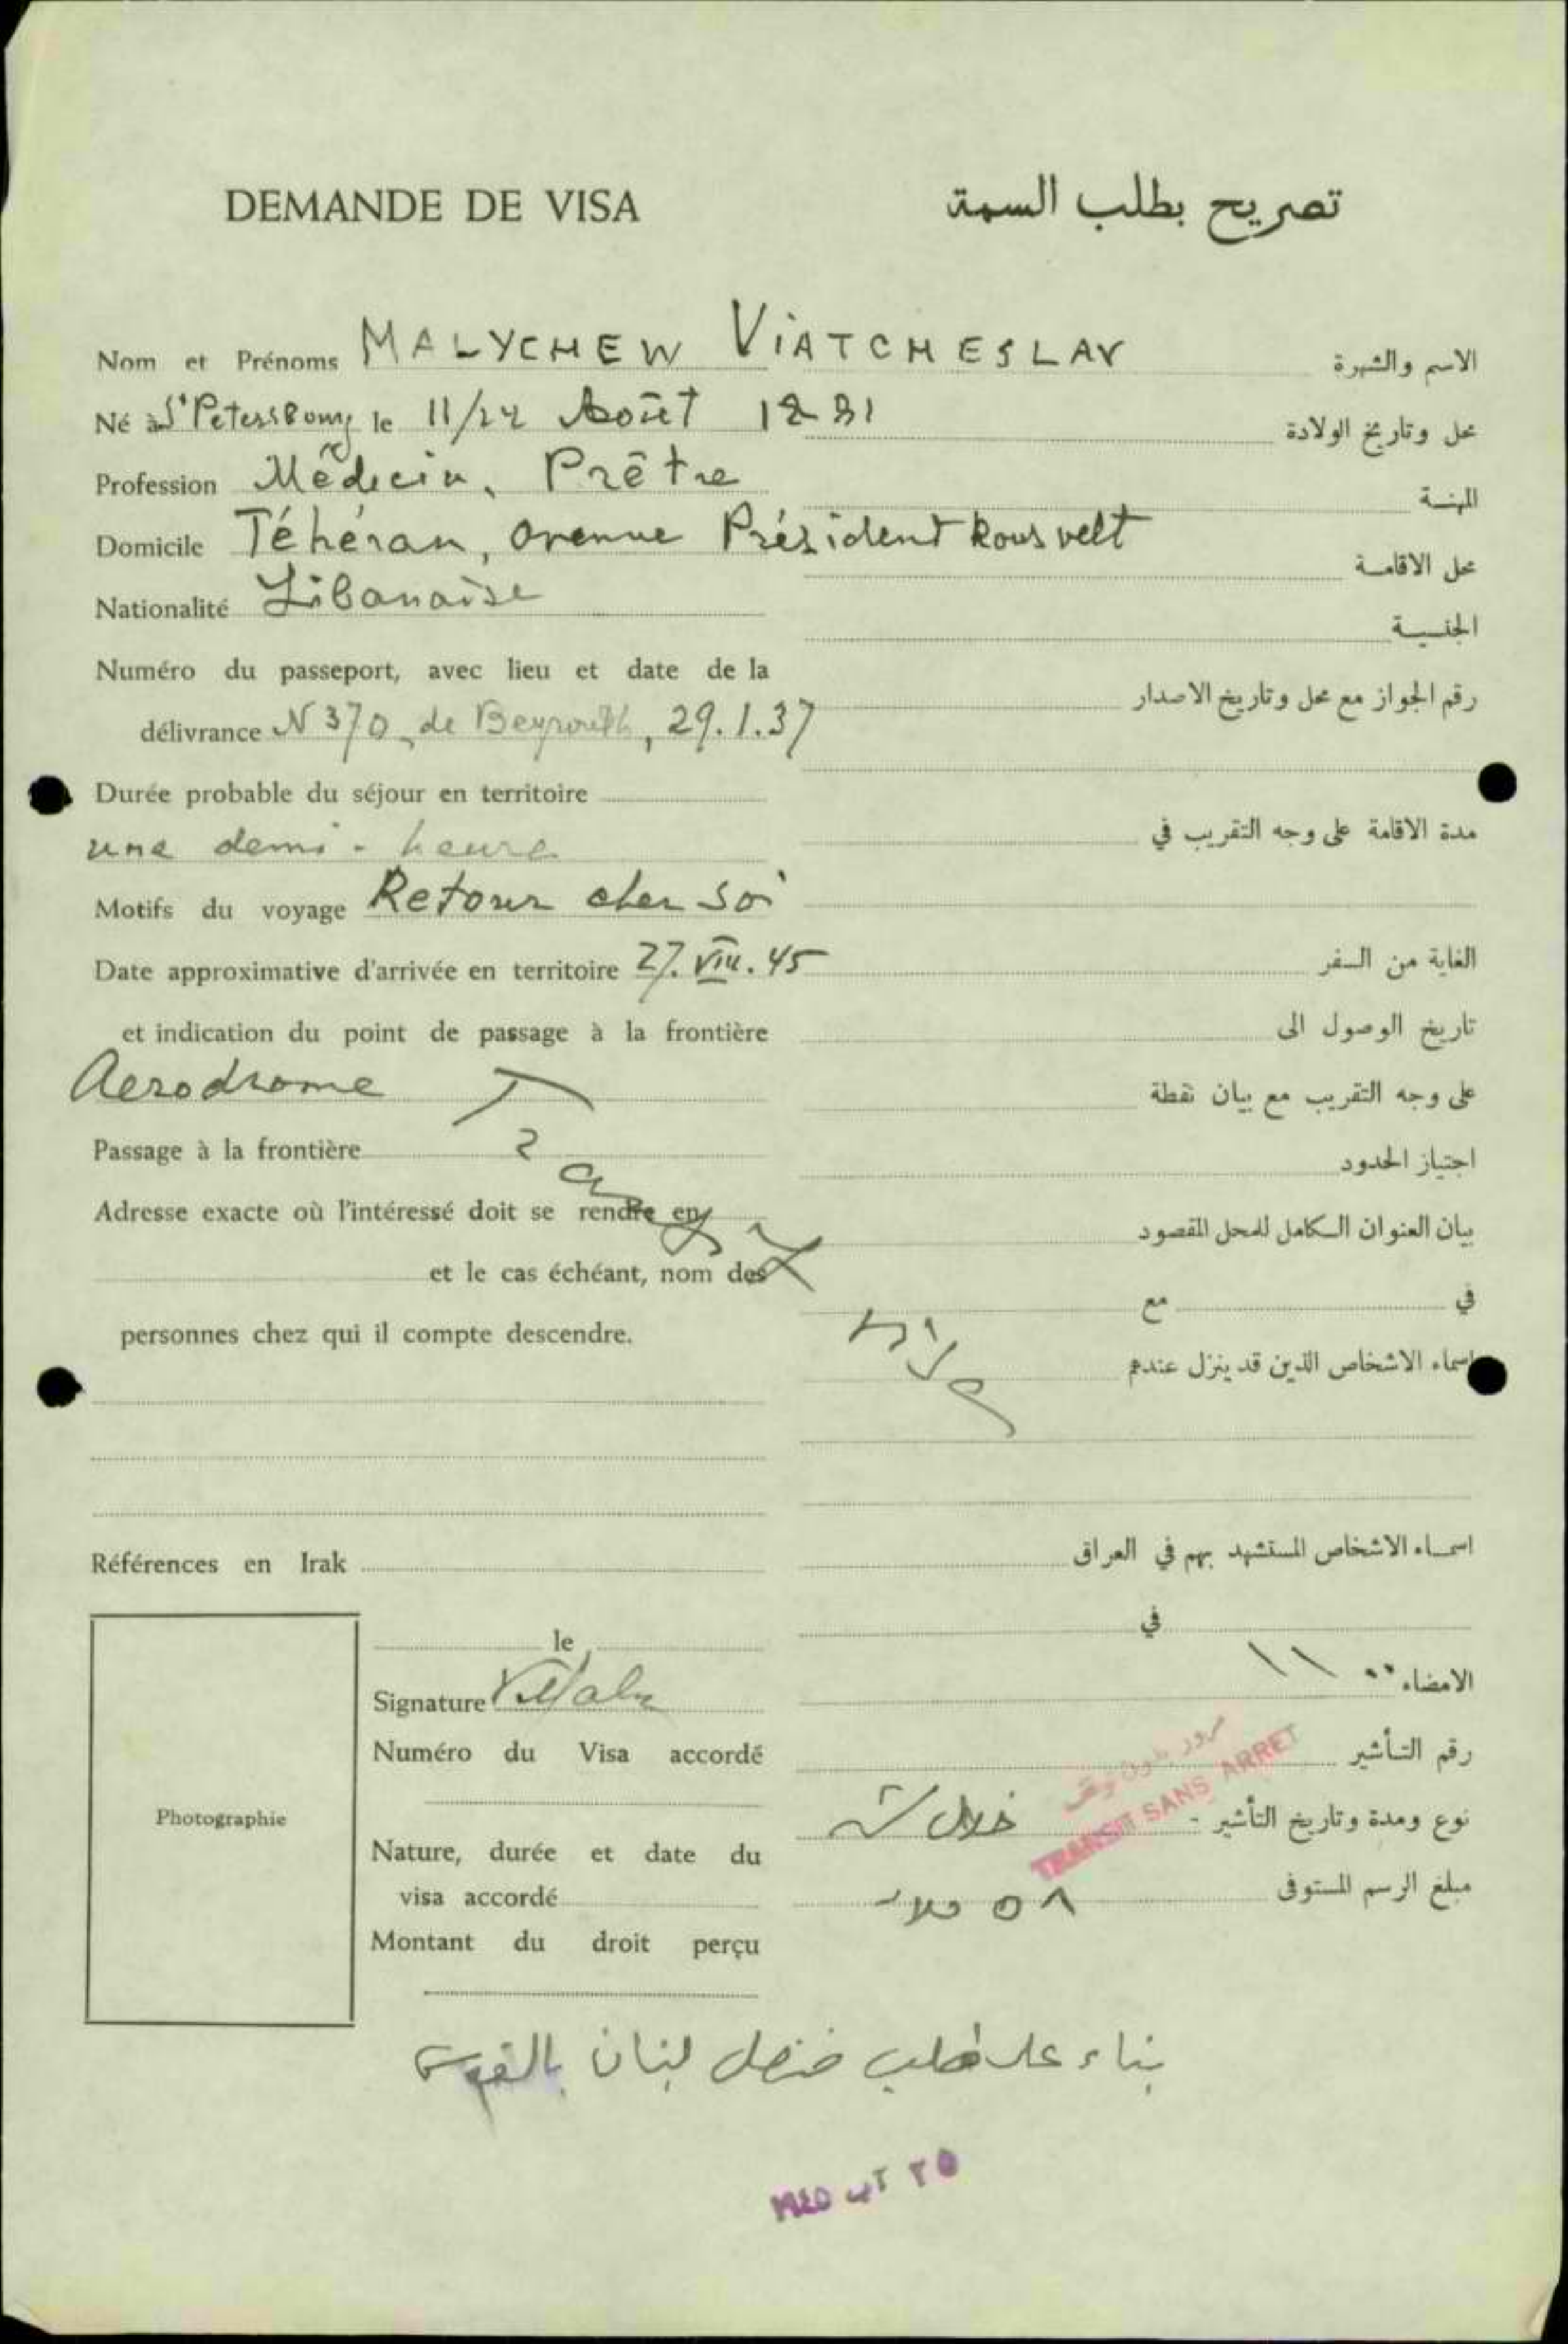 DEMANDE DE VISA
تصريح بطلب السمة
Nom et Prénoms MALYCHEW VIATCHESLAV
الاسم والشهرة
Né à St Petersbourg le 11/24 Août 1881
محل وتاريخ الولادة
Profession Médecin, Prêtre
المهنة
Domicile Téhéran, avenue Président Rousvelt
محل الاقامة
Nationalité Libanaise
الجنسية
Numéro du passeport, avec lieu et date de la
délivrance N 370, de Beyrouth, 29.1.37
رقم الجواز مع محل وتاريخ الاصدار
Durée probable du séjour en territoire
une demi-heure
مدة الاقامة على وجه التقريب في
Motifs du voyage Retour chez soi
الغاية من السفر
Date approximative d'arrivée en territoire 27.VIII.45
et indication du point de passage à la frontière
تاريخ الوصول الى
Aerodrome
على وجه التقريب مع بيان نقطة
Passage à la frontière
اجتياز الحدود
Transit
Adresse exacte où l'intéressé doit se rendre en
بيان العنوان الكامل للمحل المقصود
et le cas échéant, nom des
في مع
personnes chez qui il compte descendre.
اسماء الاشخاص الذين قد ينزل عندهم
Références en Irak
اسماء الاشخاص المستشهد بهم في العراق
le
في
Signature
الامضاء
Numéro du Visa accordé
رقم التأشير
Photographie
مرور بدون توقف
TRANSIT SANS ARRET
Nature, durée et date du
visa accordé
نوع ومدة وتاريخ التأشير
خلال
Montant du droit perçu
مبلغ الرسم المستوفى
٥٨
بناء على طلب قنصل لبنان بالقدس
٢٥ آب ١٩٤٥